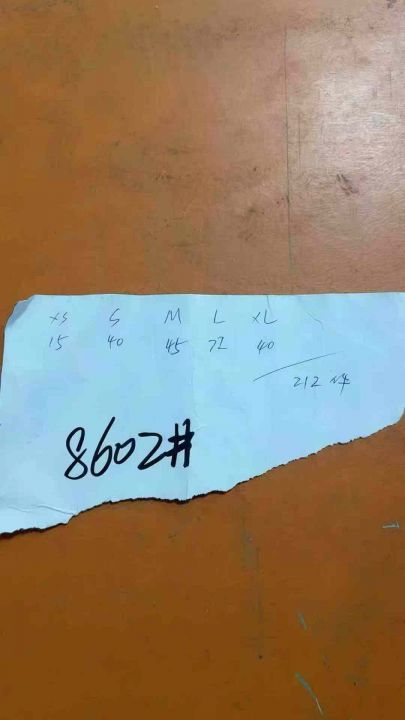 XS S M L XL
15 40 45 72 40
212件
8602#